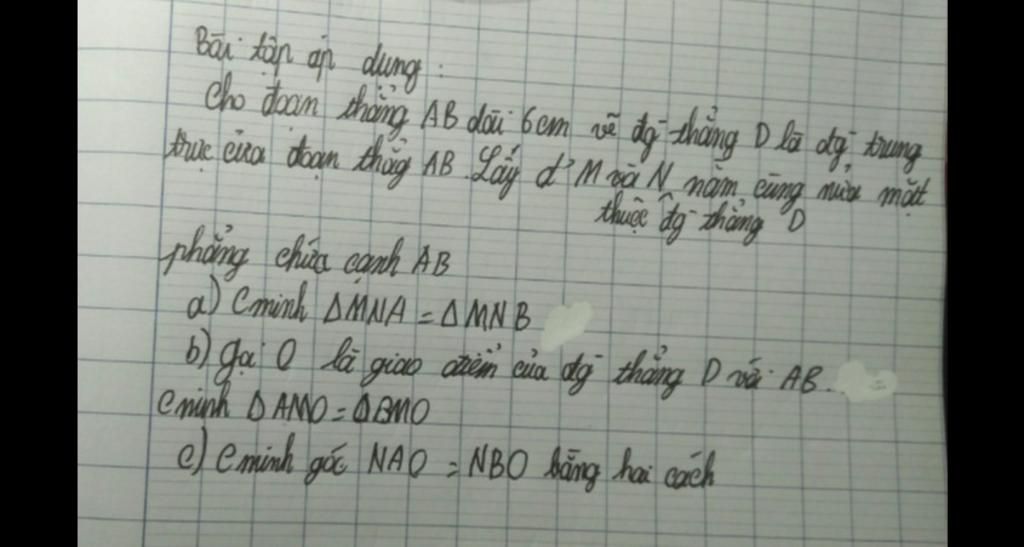 Bài tập áp dụng :
Cho đoạn thẳng AB dài 6cm vẽ đg thẳng D là đg trung
trực của đoạn thẳg AB. Lấy đ' M và N nằm cùng nửa mặt
thuộc đg thẳng D
phẳng chứa cạnh AB
a) Cminh ΔMNA = ΔMNB
b) gọi O là giao điểm của đg thẳng D với AB.
Cminh ΔAMO = ΔBMO
c) Cminh góc NAO = NBO bằng hai cách